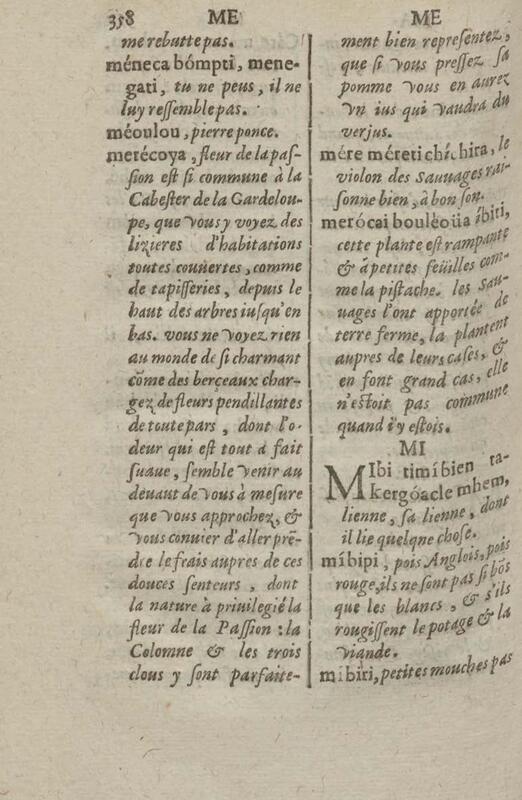 358 ME
me rebutte pas.
méneca bómpti, mene-
gati, tu ne peus, il ne
luy ressemble pas.
méoulou, pierre ponce.
merécoya, fleur de la pas-
sion est si commune à la
Cabester de la Gardelou-
pe, que vous y voyez des
lizieres d'habitations
toutes couuertes, comme
de tapisseries, depuis le
haut des arbres iusqu'en
bas. vous ne voyez rien
au monde de si charmant
cõme des berçeaux char-
gez de fleurs pendillantes
de toute pars, dont l'o-
deur qui est tout à fait
suaue, semble venir au
deuant de vous à mesure
que vous approchez, &
vous conuier d'aller prẽ-
dre le frais aupres de ces
douces senteurs, dont
la nature à priuilegié la
fleur de la Passion : la
Colomne & les trois
clous y sont parfaite-
ME
ment bien representez,
que si vous pressez sa
pomme vous en aurez
vn ius qui vaudra du
verjus.
mére méreti chíchira, le
violon des Sauuages rai-
sonne bien, à bon son.
merócai bouléoüa íbiti,
cette plante est rampante
& à petites feüilles com-
me la pistache. les Sau-
uages l'ont apportée de
terre ferme, la plantent
aupres de leurs cases, &
en font grand cas, elle
n'estoit pas commune
quand i'y estois.
MI
MIbi timíbien ta-
kergóacle mhem,
lienne, sa lienne, dont
il lie quelque chose.
míbipi, pois Anglois, pois
rouge, ils ne sont pas si bõs
que les blancs, & s'ils
rougissent le potage & la
viande.
míbiri, petites mouches pas